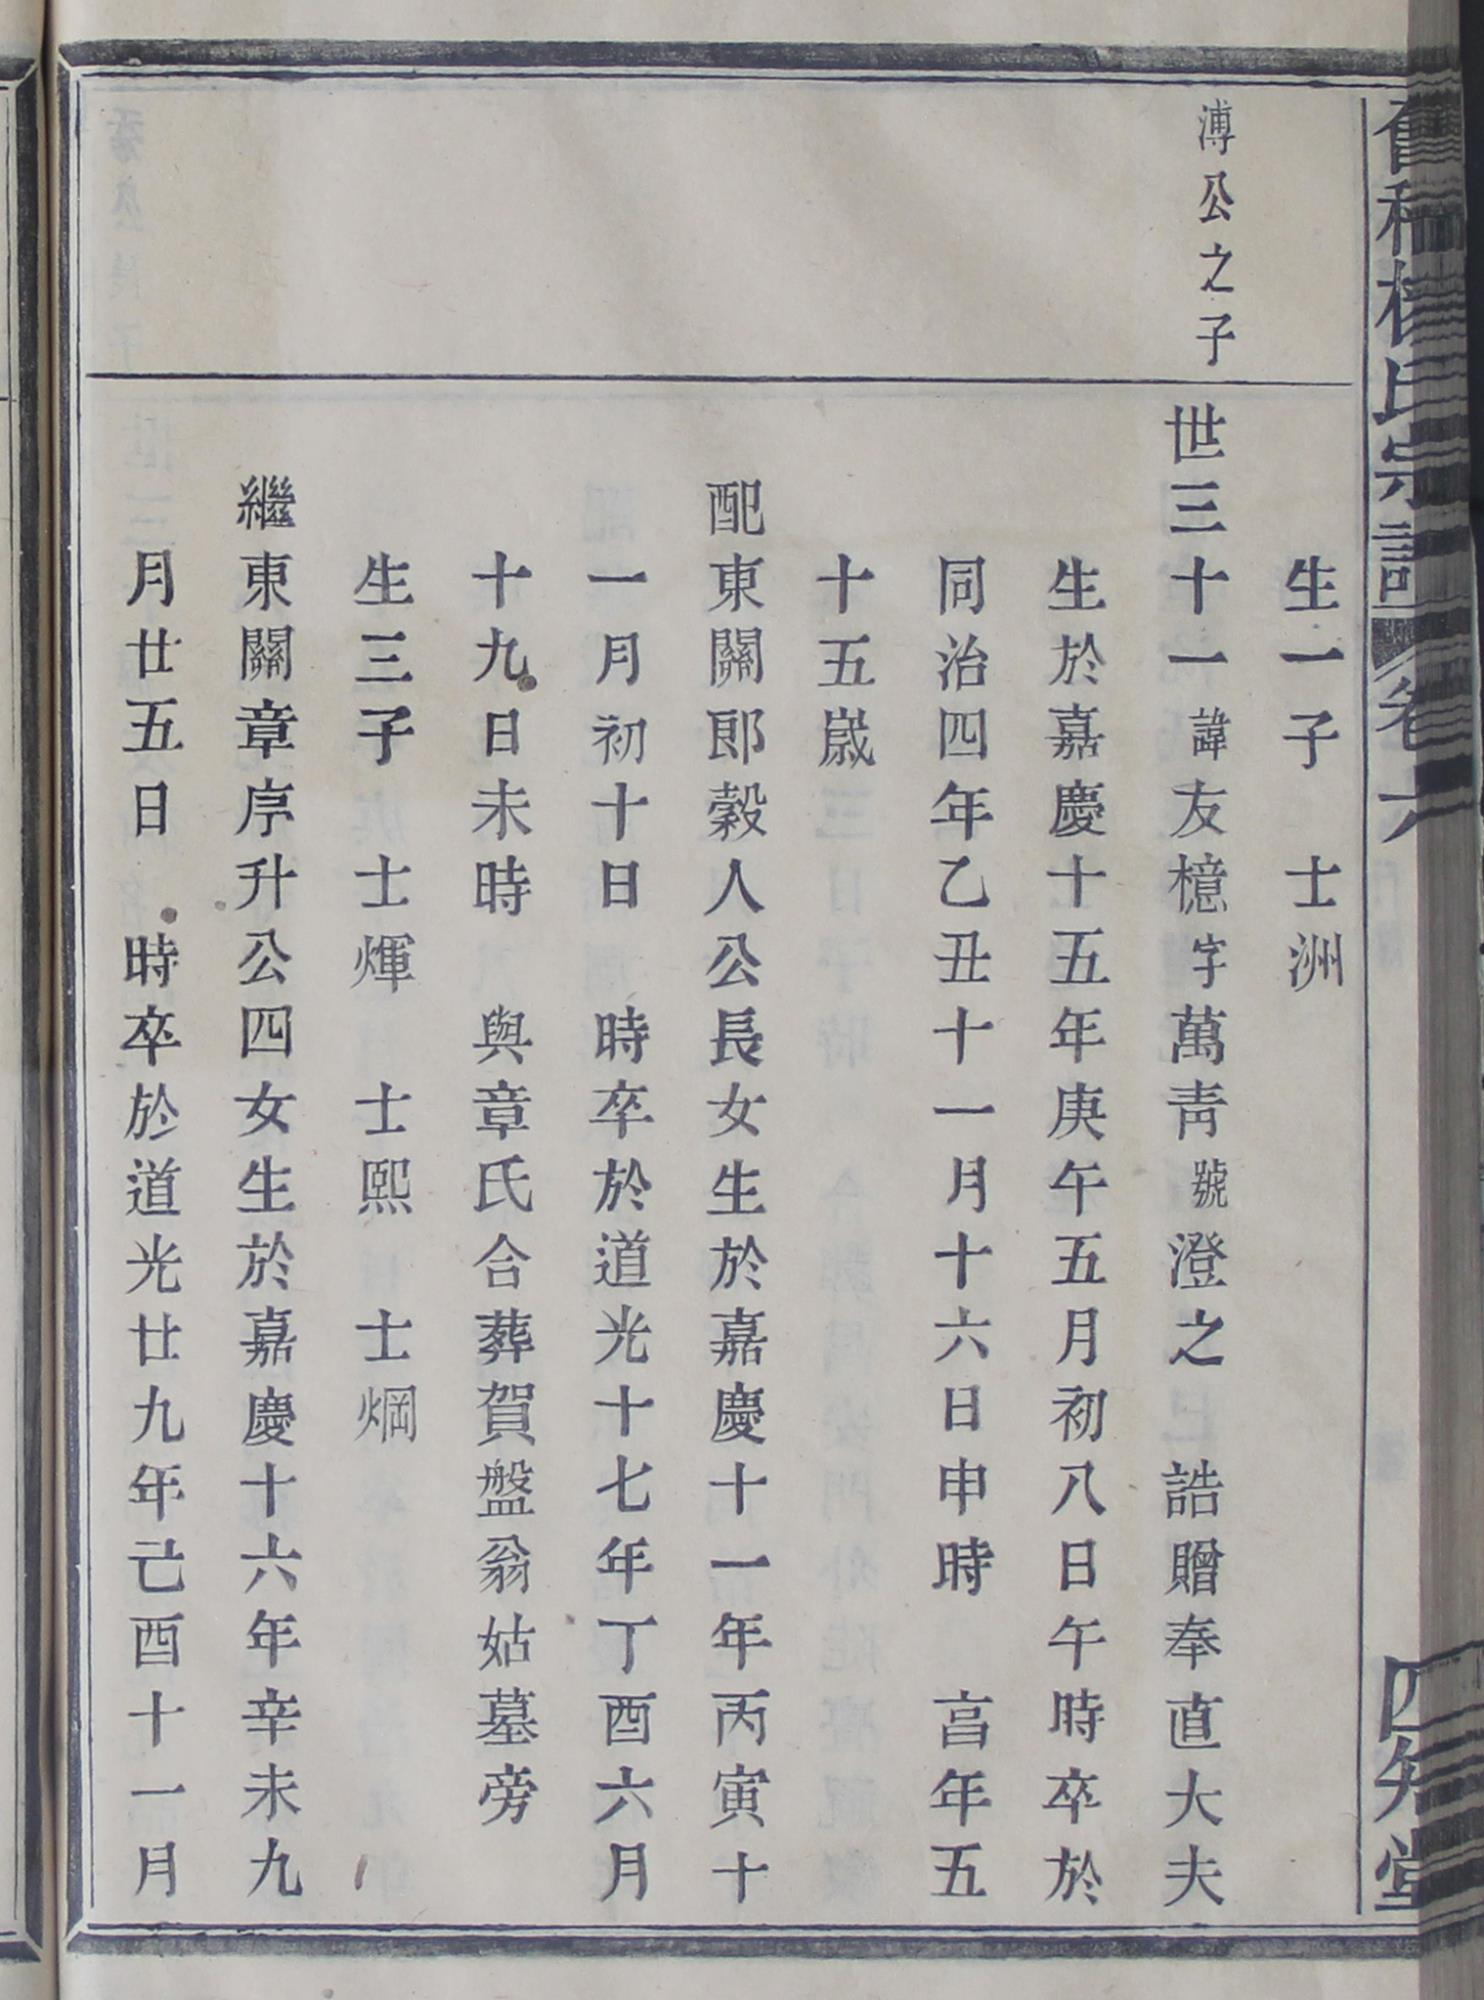 楊氏宗譜 卷六 四知堂
生一子 士洲
溥公之子
世三十一諱友檍字萬靑號澄之 誥贈奉直大夫
生於嘉慶十五年庚午五月初八日午時卒於
同治四年乙丑十一月十六日申時 亯年五
十五歲
配東關郎穀人公長女生於嘉慶十一年丙寅十
一月初十日 時卒於道光十七年丁酉六月
十九日未時 與章氏合葬賀盤翁姑墓旁
生三子 士煇 士熙 士焵
繼東關章序升公四女生於嘉慶十六年辛未九
月廿五日 時卒於道光廿九年己酉十一月